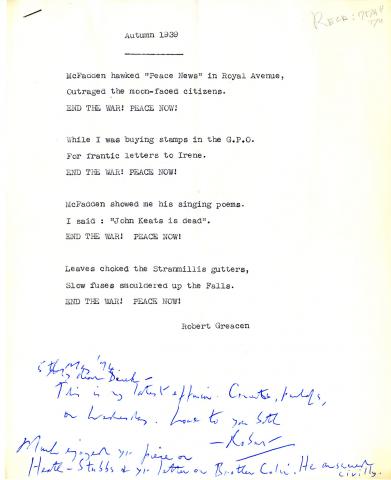 Autumn 1939
McFadden hawked "Peace News" in Royal Avenue,
Outraged the moon-faced citizens.
END THE WAR! PEACE NOW!
While I was buying stamps in the G.P.O.
For frantic letters to Irene.
END THE WAR! PEACE NOW!
McFadden showed me his singing poems.
I said : "John Keats is dead".
END THE WAR! PEACE NOW!
Leaves choked the Stranmillis gutters,
Slow fuses smouldered up the Falls.
END THE WAR! PEACE NOW!
Robert Greacen
5th May '76
My dear Derek —
This is my latest effusion.
on Wednesday. Love to you both
— Robert
Much enjoyed yr piece on
Heath-Stubbs & yr letter on Brother Colin. He answered
civilly.